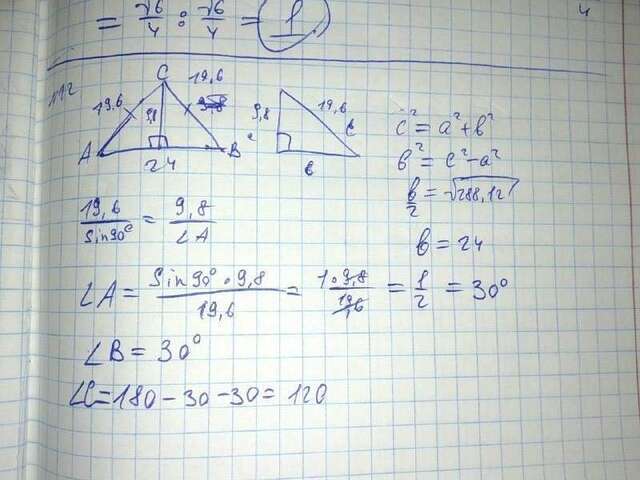 = √6/4 : √6/4 = 1
4
N12
C
19,6
19,6
9,8
9,8
A
24
B
9,8
19,6
c
b
c² = a² + b²
b² = c² - a²
b/2 = √288,12
b = 24
19,6/Sin90° = 9,8/∠A
∠A = Sin90° • 9,8/19,6 = 1 • 9,8/19,6 = 1/2 = 30°
∠B = 30°
∠C = 180 - 30 - 30 = 120